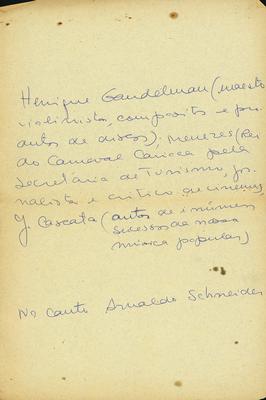 Henrique Gandelman (maestro
violinista, compositor e pro.
autor de discos); Menezes (Rei
do Carnaval Carioca pela
Secretária de Turismo, jor
nalista e crítico de cinema
J. Cascata (autor de inúmeros
sucessos da nossa
música popular)
No canto Arnaldo Schneider